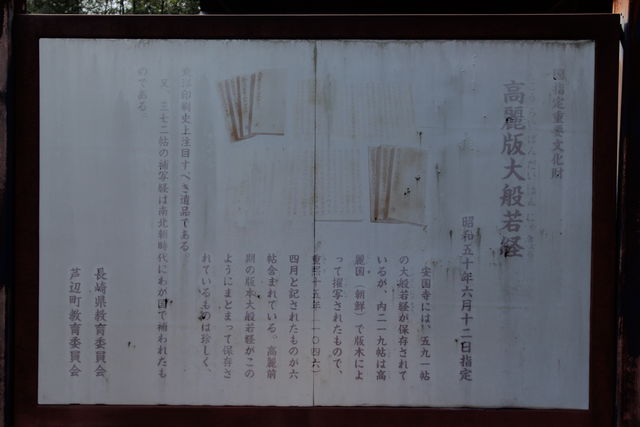 国指定重要文化財
こうらいばんだいはんにゃきょう
高麗版大般若経
昭和五十年六月十二日指定
安国寺には、五九一帖
の大般若経が保存されて
いるが、内二一九帖は高
麗国(朝鮮)で版木によ
って摺写されたもので、
重熙十五年(一〇四六)
四月と記されたものが六
帖含まれている。高麗前
期の版本大般若経がこの
ようにまとまって保存さ
れているものは珍しく、
東洋印刷史上注目すべき遺品である。
又、三七二帖の補写経は南北朝時代にわが国で補われたも
のである。
長崎県教育委員会
芦辺町教育委員会